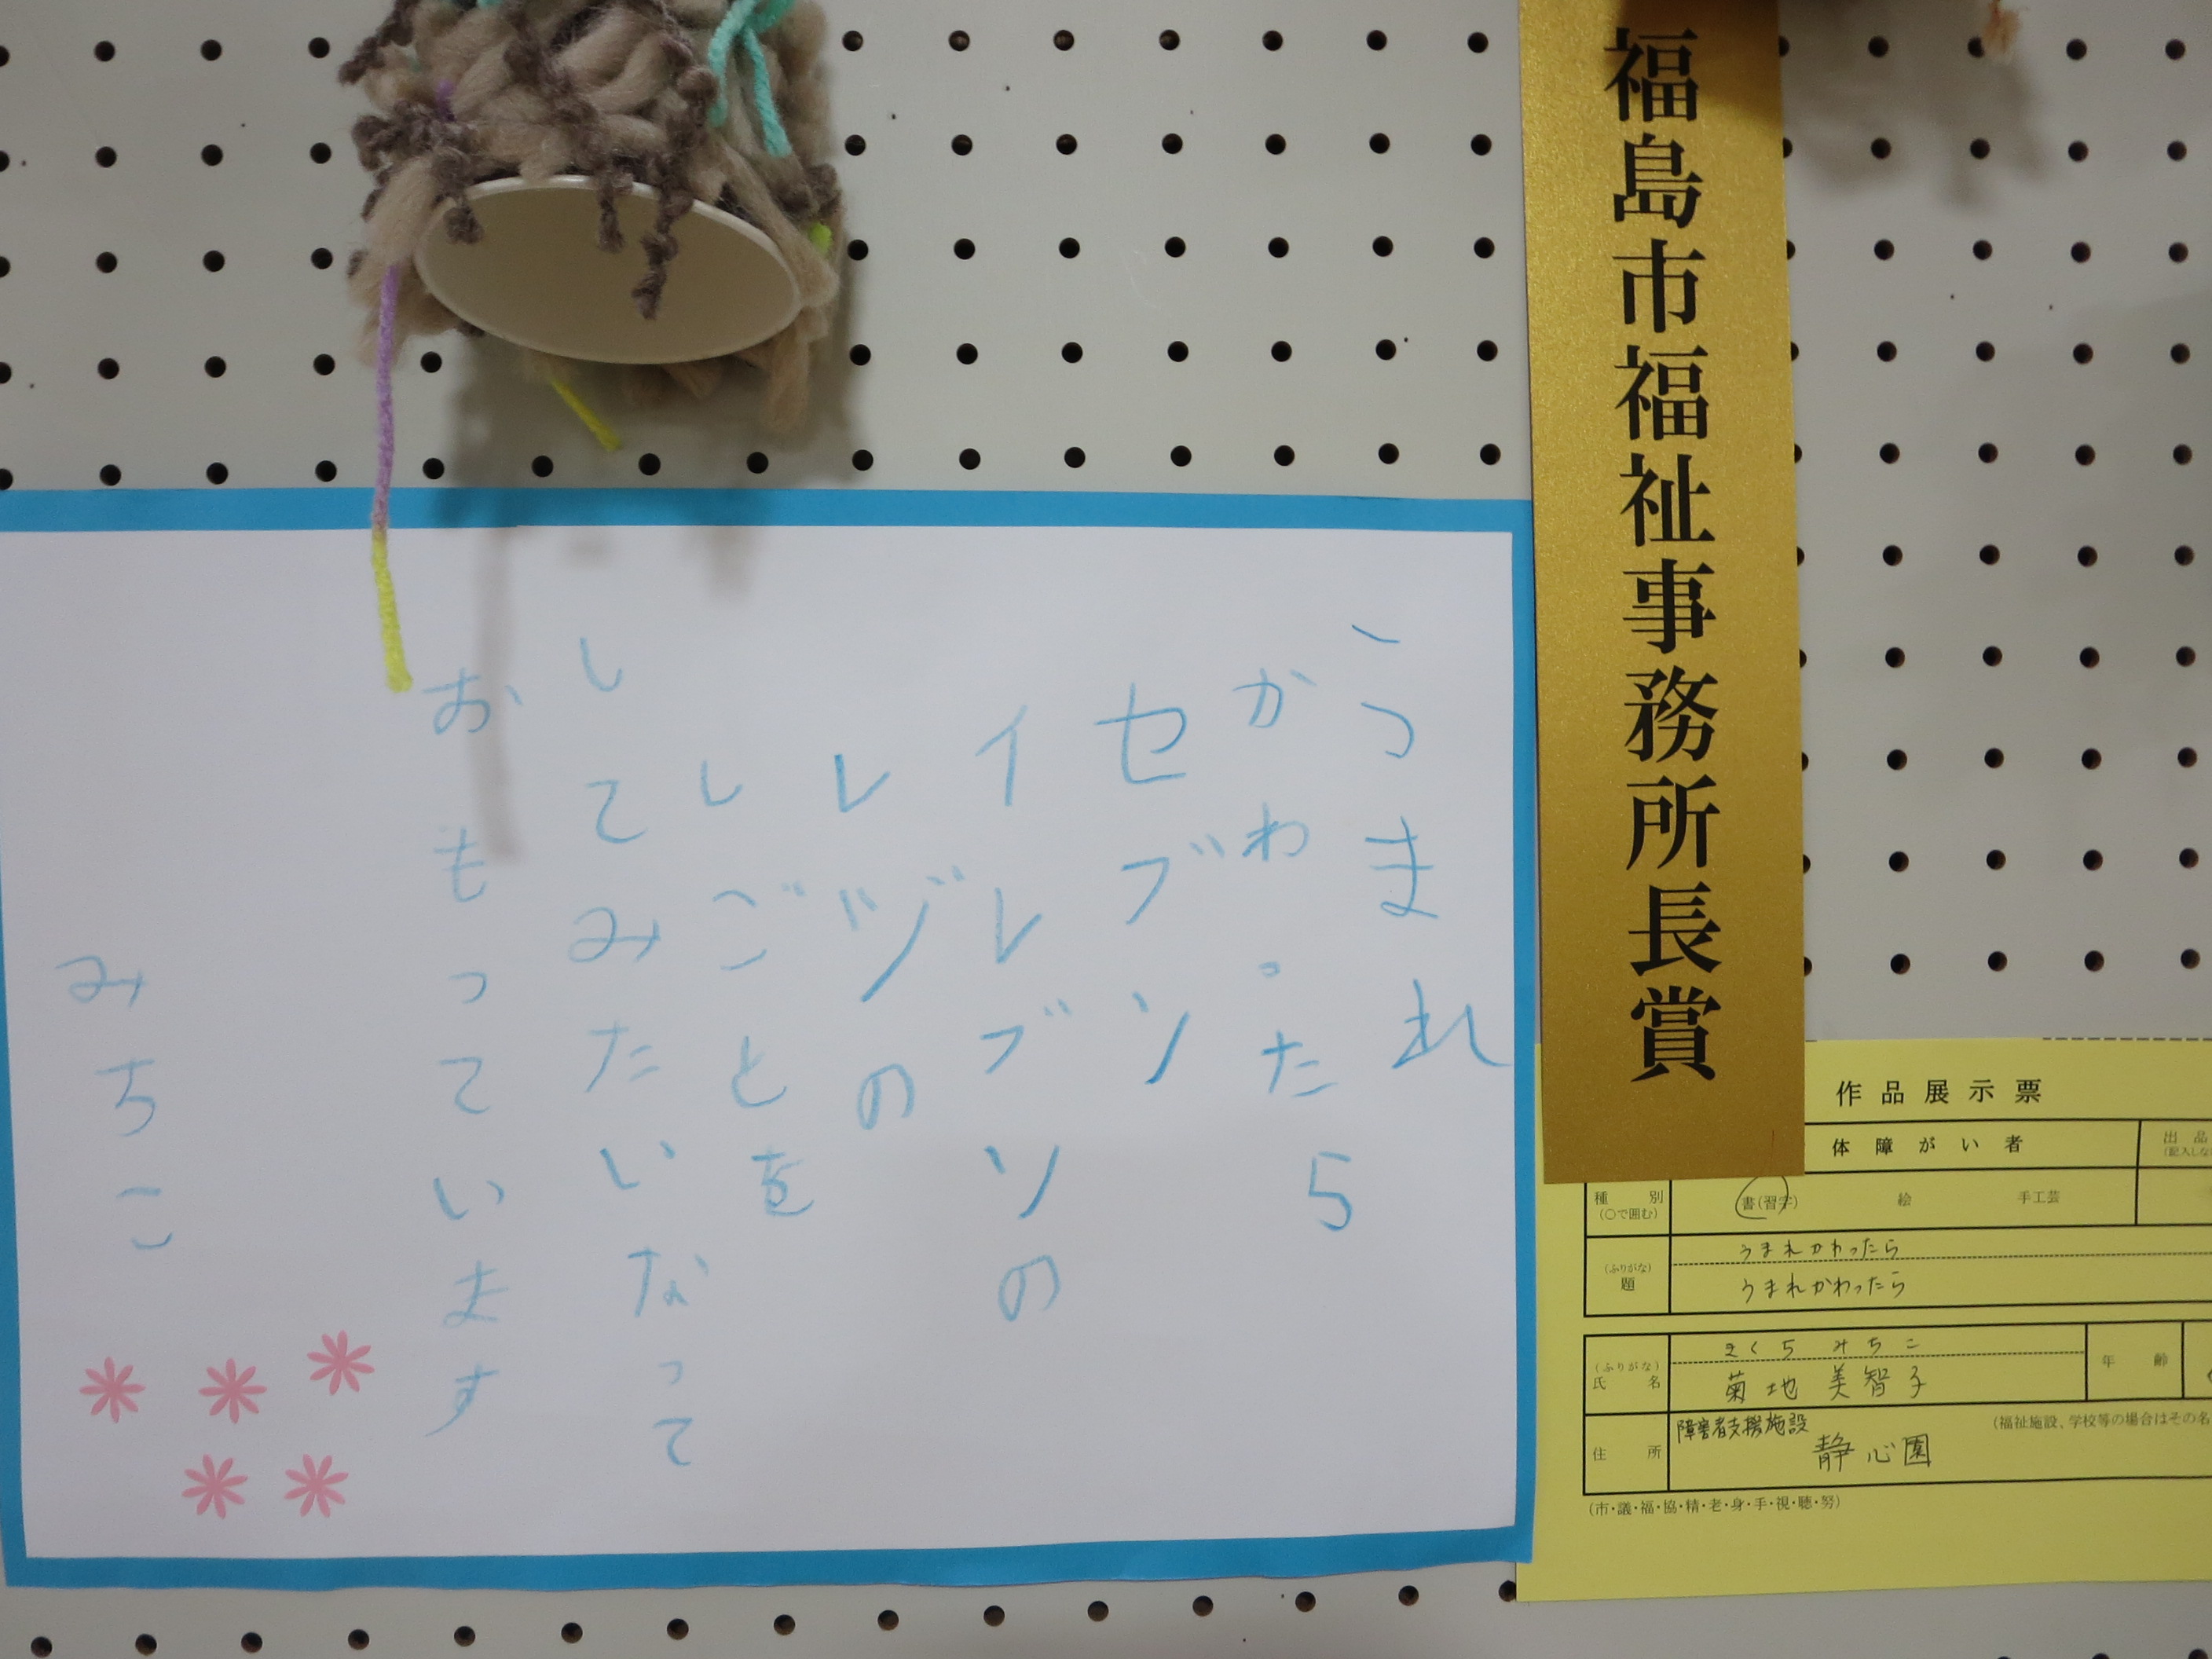 福島市福祉事務所長賞
うまれ
かわったら
セブン
イレブンの
レヅの
しごとを
してみたいなって
おもっています
みちこ
作品展示票
体障がい者
出品
(記入しな
種別
(○で囲む)
書(習字) 絵 手工芸
(ふりがな)
題
うまれかわったら
うまれかわったら
(ふりがな)
氏名
きくち みちこ
菊地 美智子
年齢
住所
障害者支援施設
静心園
(福祉施設、学校等の場合はその名
(市・議・福・協・精・老・身・手・視・聴・努)